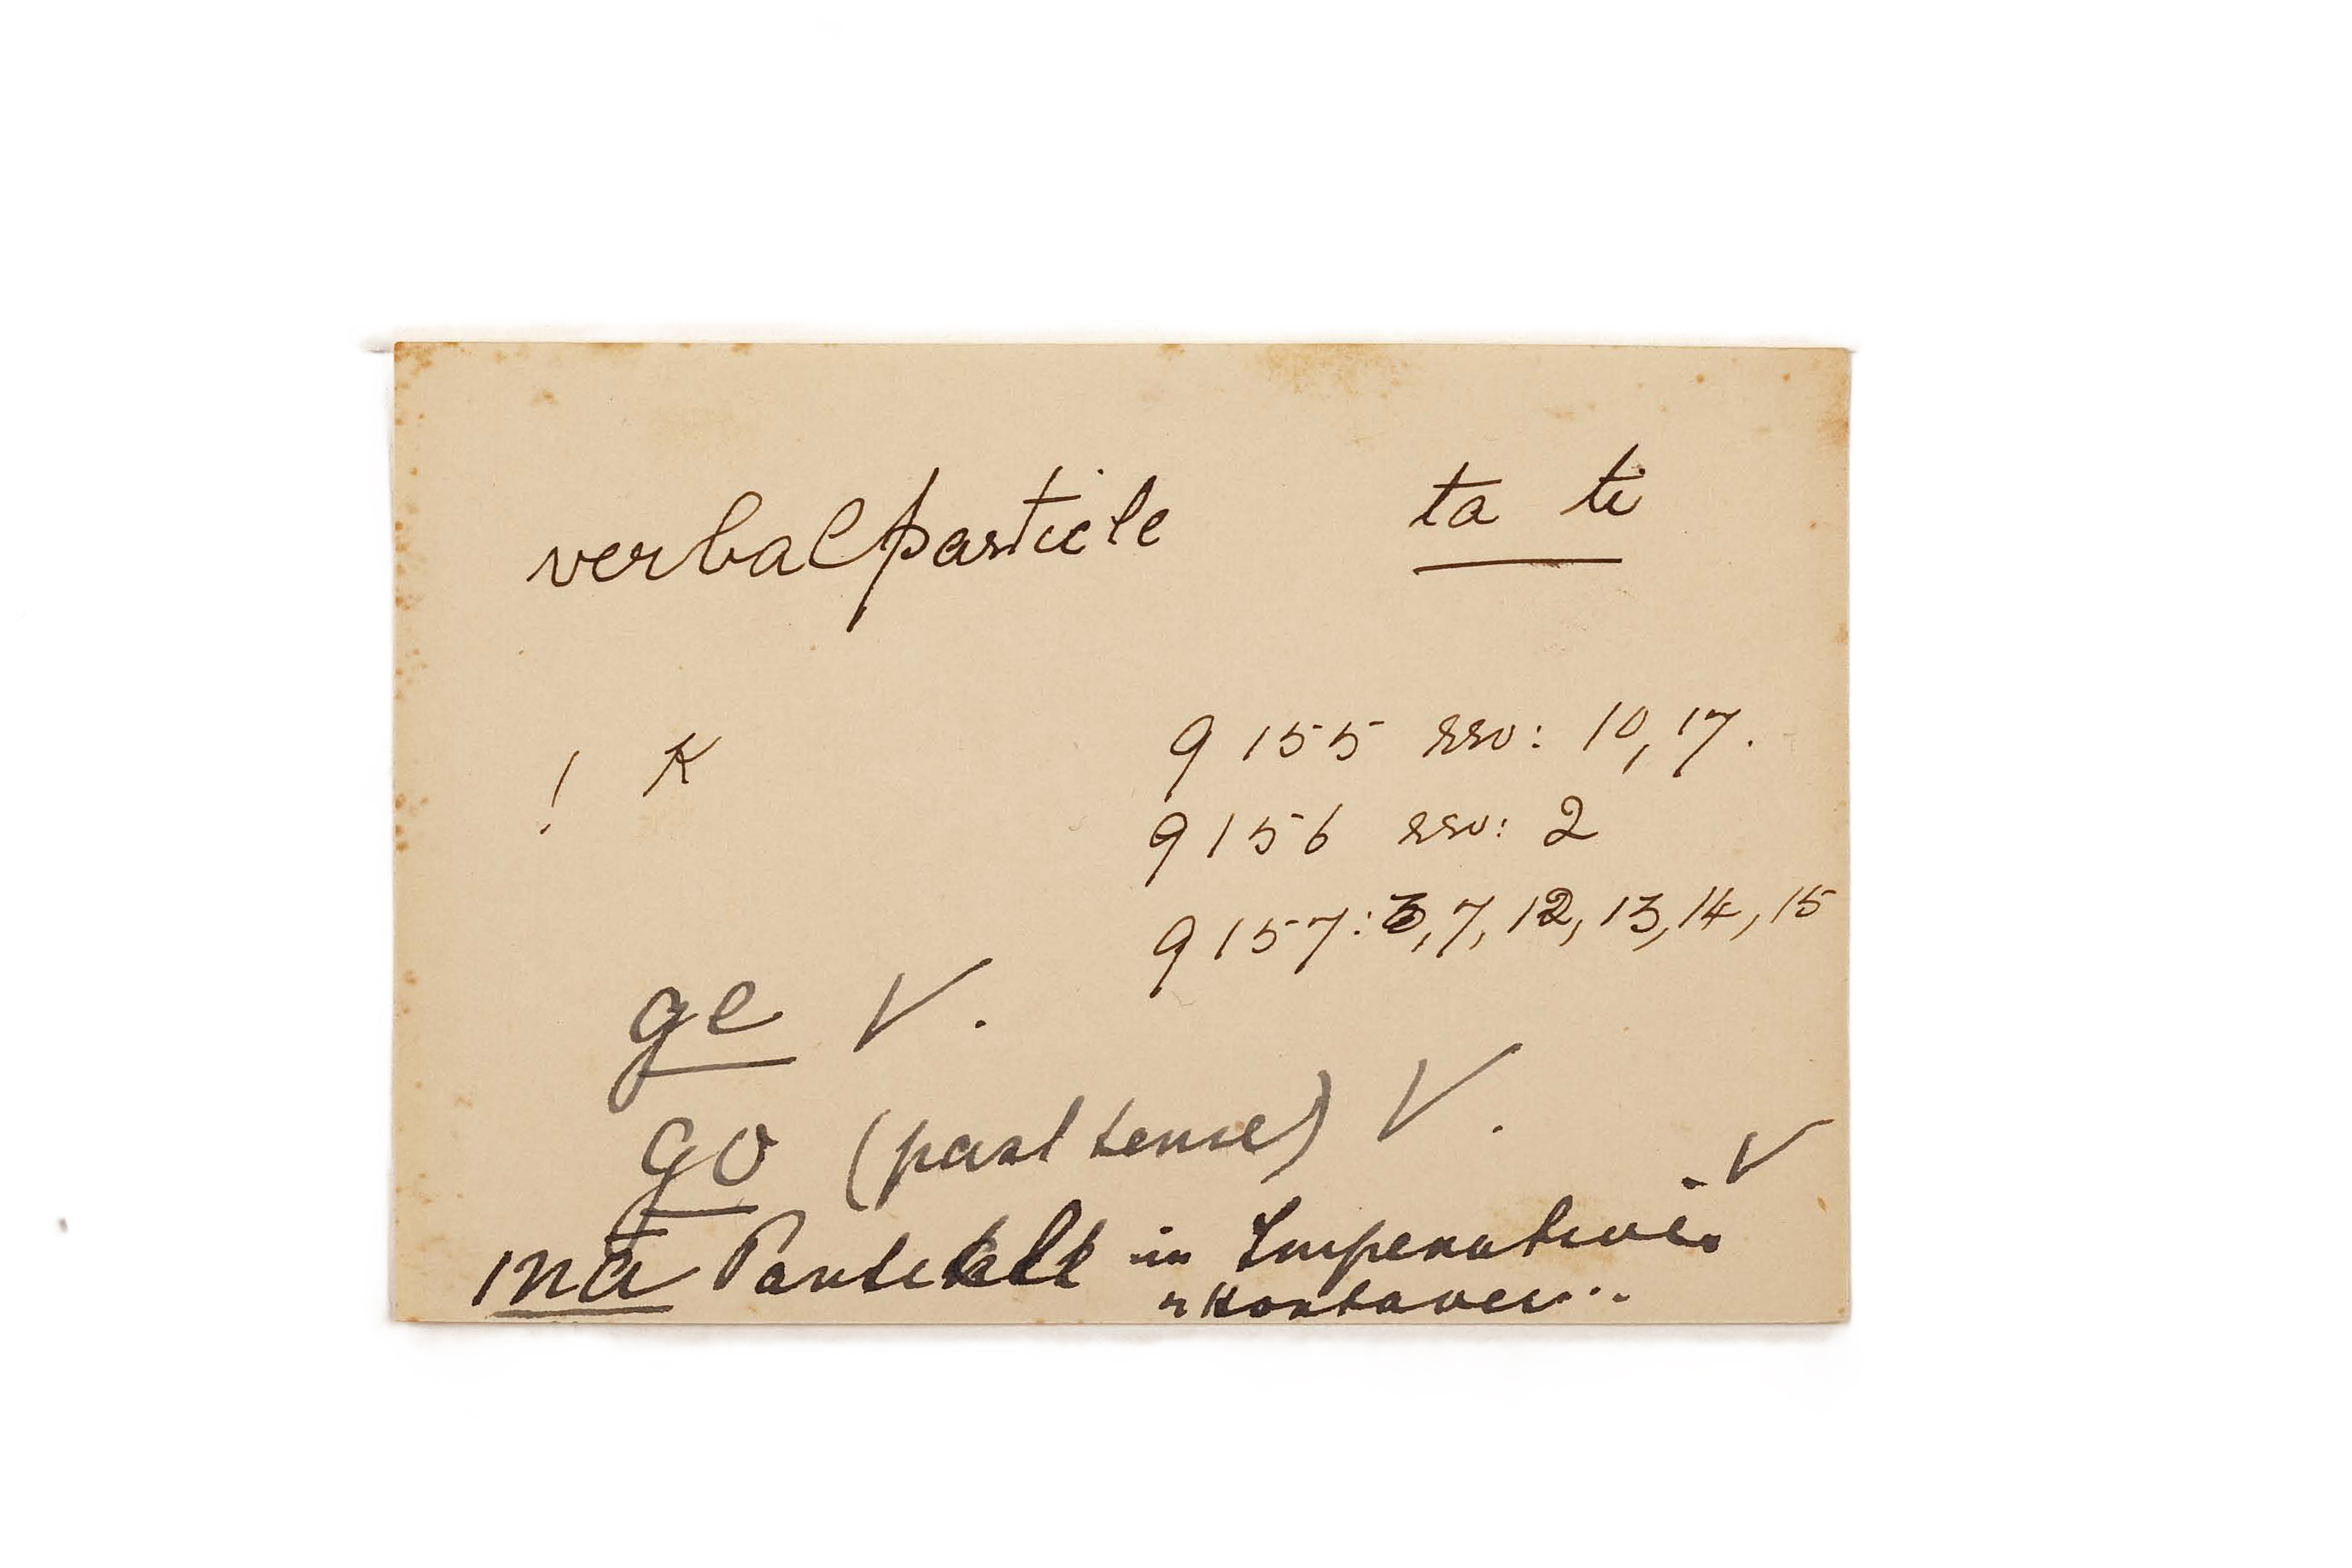 verbalparticle ta ti
! K 9155 rev: 10, 17.
9156 rev: 2
9157: 3, 7, 12, 13, 14, 15
ge V.
go (past tense) V.
V
ma Partikel in Imperative.